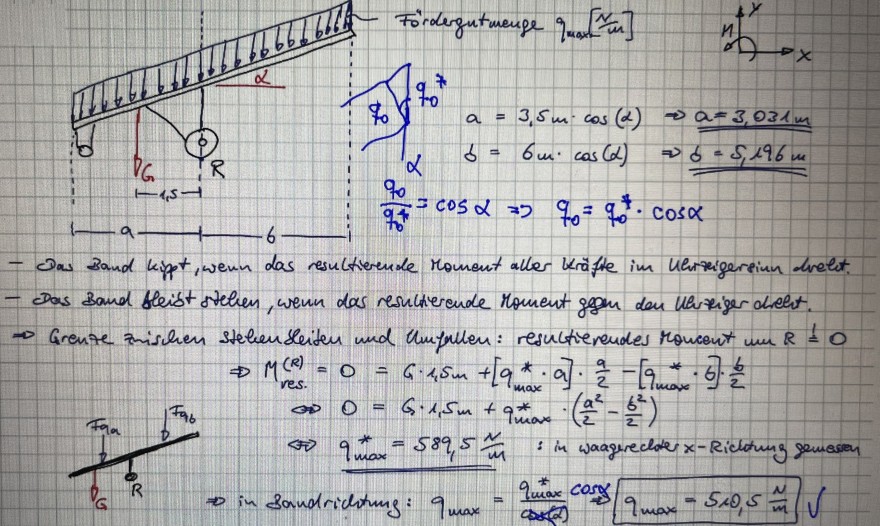 Fördergutmenge q_max [N/m]
y
M
x
α
G
R
1,5
a
b
q_0
q_0^*
α
a = 3,5m · cos(α) ⇒ a = 3,031m
b = 6m · cos(α) ⇒ b = 5,196m
q_0/q_0^* = cos α ⇒ q_0 = q_0^* · cosα
– Das Band kippt, wenn das resultierende Moment aller Kräfte im Uhrzeigersinn dreht.
– Das Band bleibt stehen, wenn das resultierende Moment gegen den Uhrzeiger dreht.
⇒ Grenze zwischen Stehenbleiben und Umfallen: resultierendes Moment um R != 0
⇒ M_res.^(R) = 0 = G · 1,5m + [q_max^* · a] · a/2 – [q_max^* · b] · b/2
⇔ 0 = G · 1,5m + q_max^* · (a²/2 – b²/2)
⇔ q_max^* = 589,5 N/m : in waagerechter x-Richtung gemessen
F_qa
F_qb
G
R
⇒ in Bandrichtung: q_max = q_max^* cosα / cos(α) ⇒ q_max = 510,5 N/m ✓